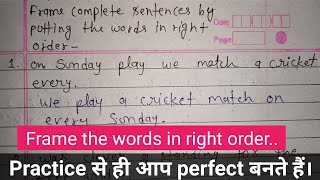 Frame complete sentences by
putting the words in right
order-
Date
Page
1. on Sunday play we match a cricket
every.
We play a cricket match on
every Sunday.
Frame the words in right order..
for the
Practice से ही आप perfect बनते हैं।